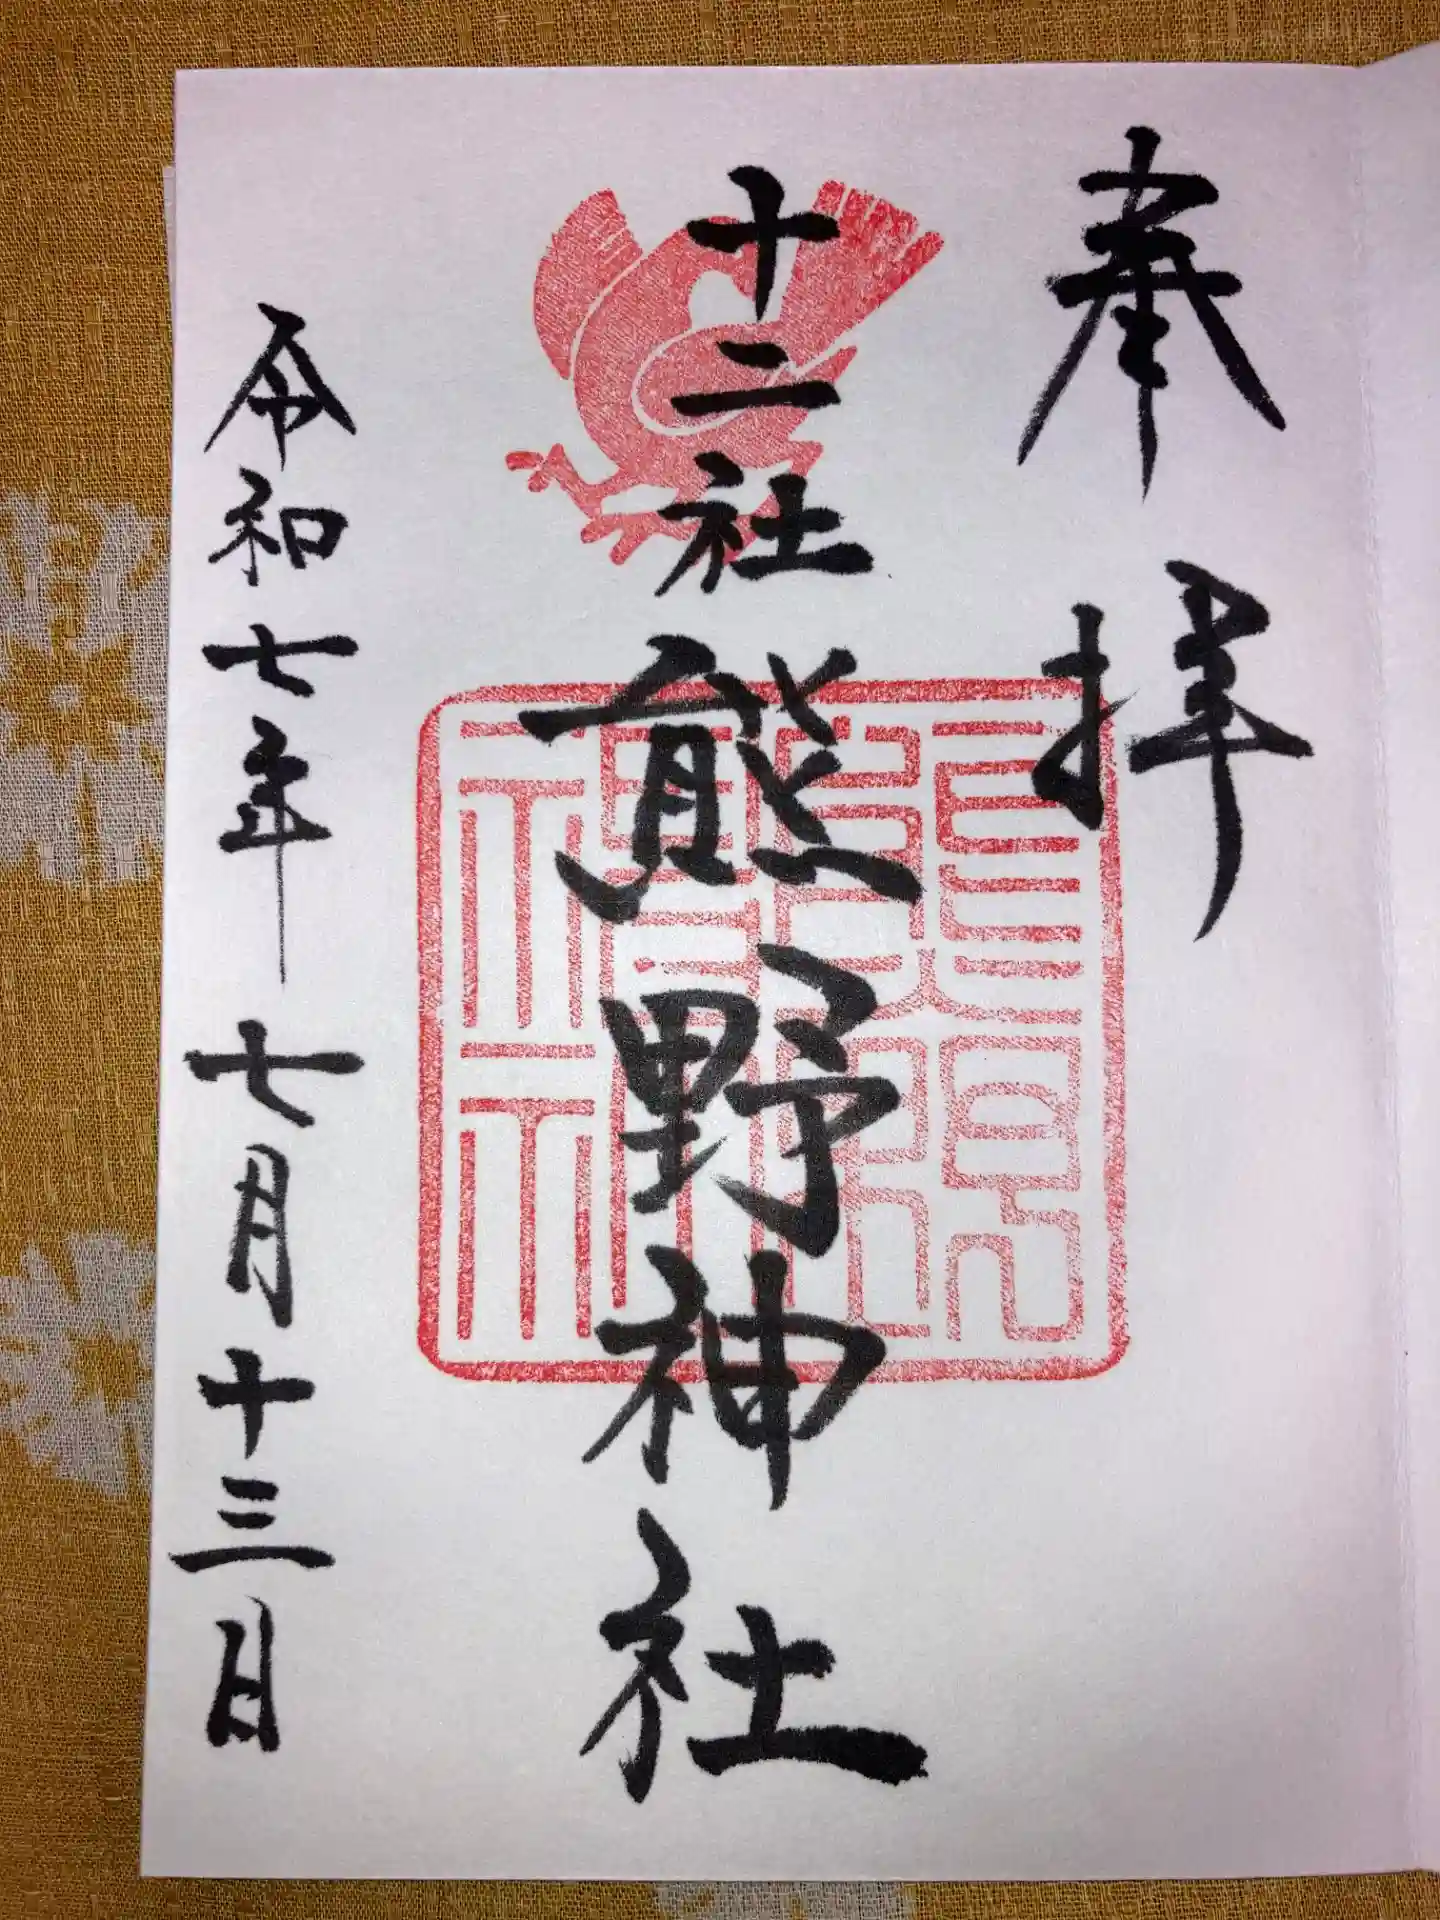 奉拝
十二社熊野神社
令和七年七月十三日